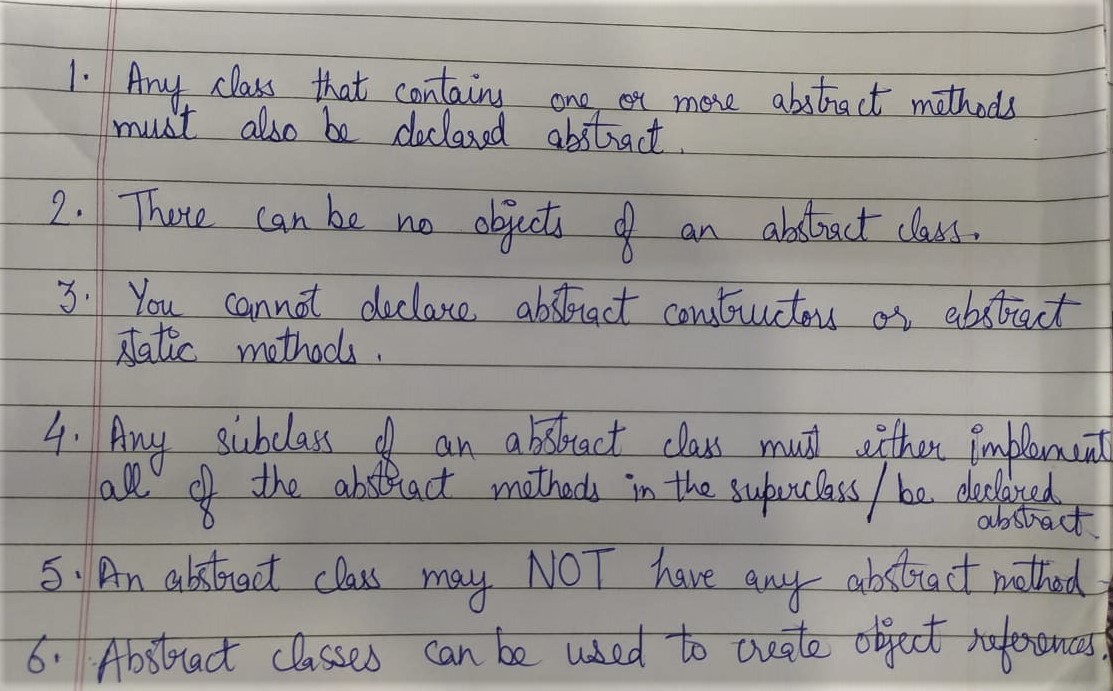 1. Any class that contains one or more abstract methods
must also be declared abstract.
2. There can be no objects of an abstract class.
3. You cannot declare abstract constructors or abstract
static methods.
4. Any subclass of an abstract class must either implement
all of the abstract methods in the superclass / be declared
abstract.
5. An abstract class may NOT have any abstract method
6. Abstract classes can be used to create object references.